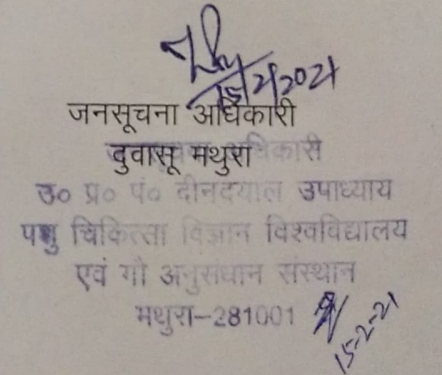 15/2/2021
जनसूचना अधिकारी
दुवासू मथुरा
अधिकारी
उ० प्र० पं० दीनदयाल उपाध्याय
पशु चिकित्सा विज्ञान विश्वविद्यालय
एवं गौ अनुसंधान संस्थान
मथुरा-281001
15-2-21